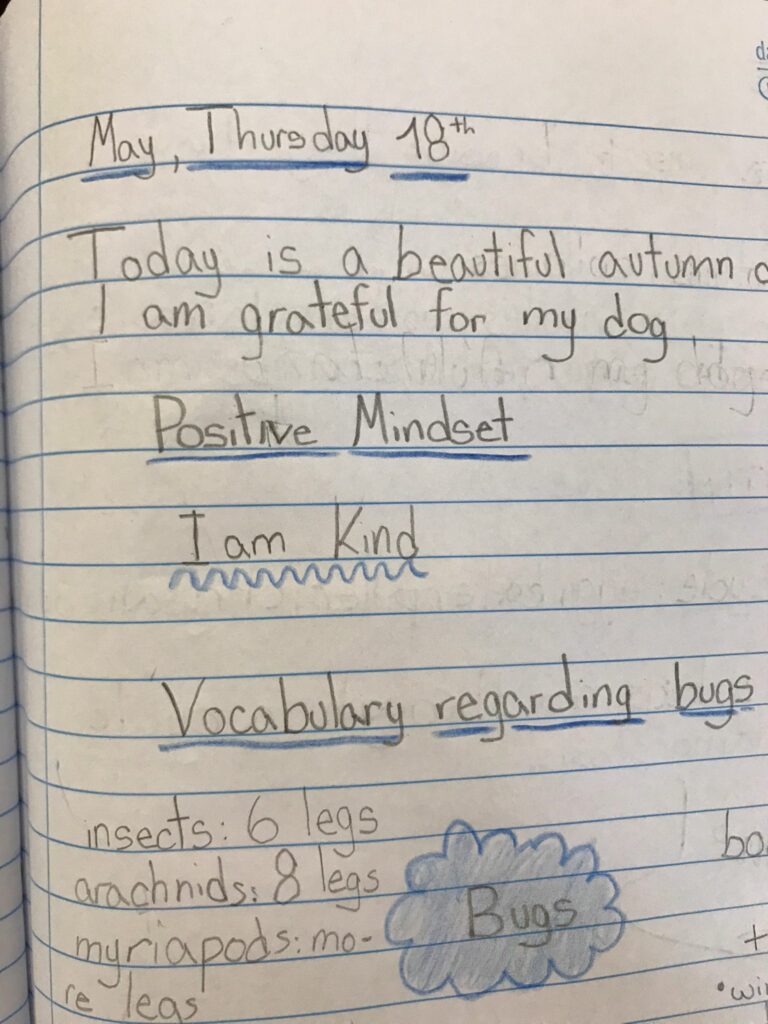 May, Thursday 18th
Today is a beautiful autumn
I am grateful for my dog.
Positive Mindset
I am Kind
Vocabulary regarding bugs
insects: 6 legs
arachnids: 8 legs
myriapods: mo-
re legs
Bugs